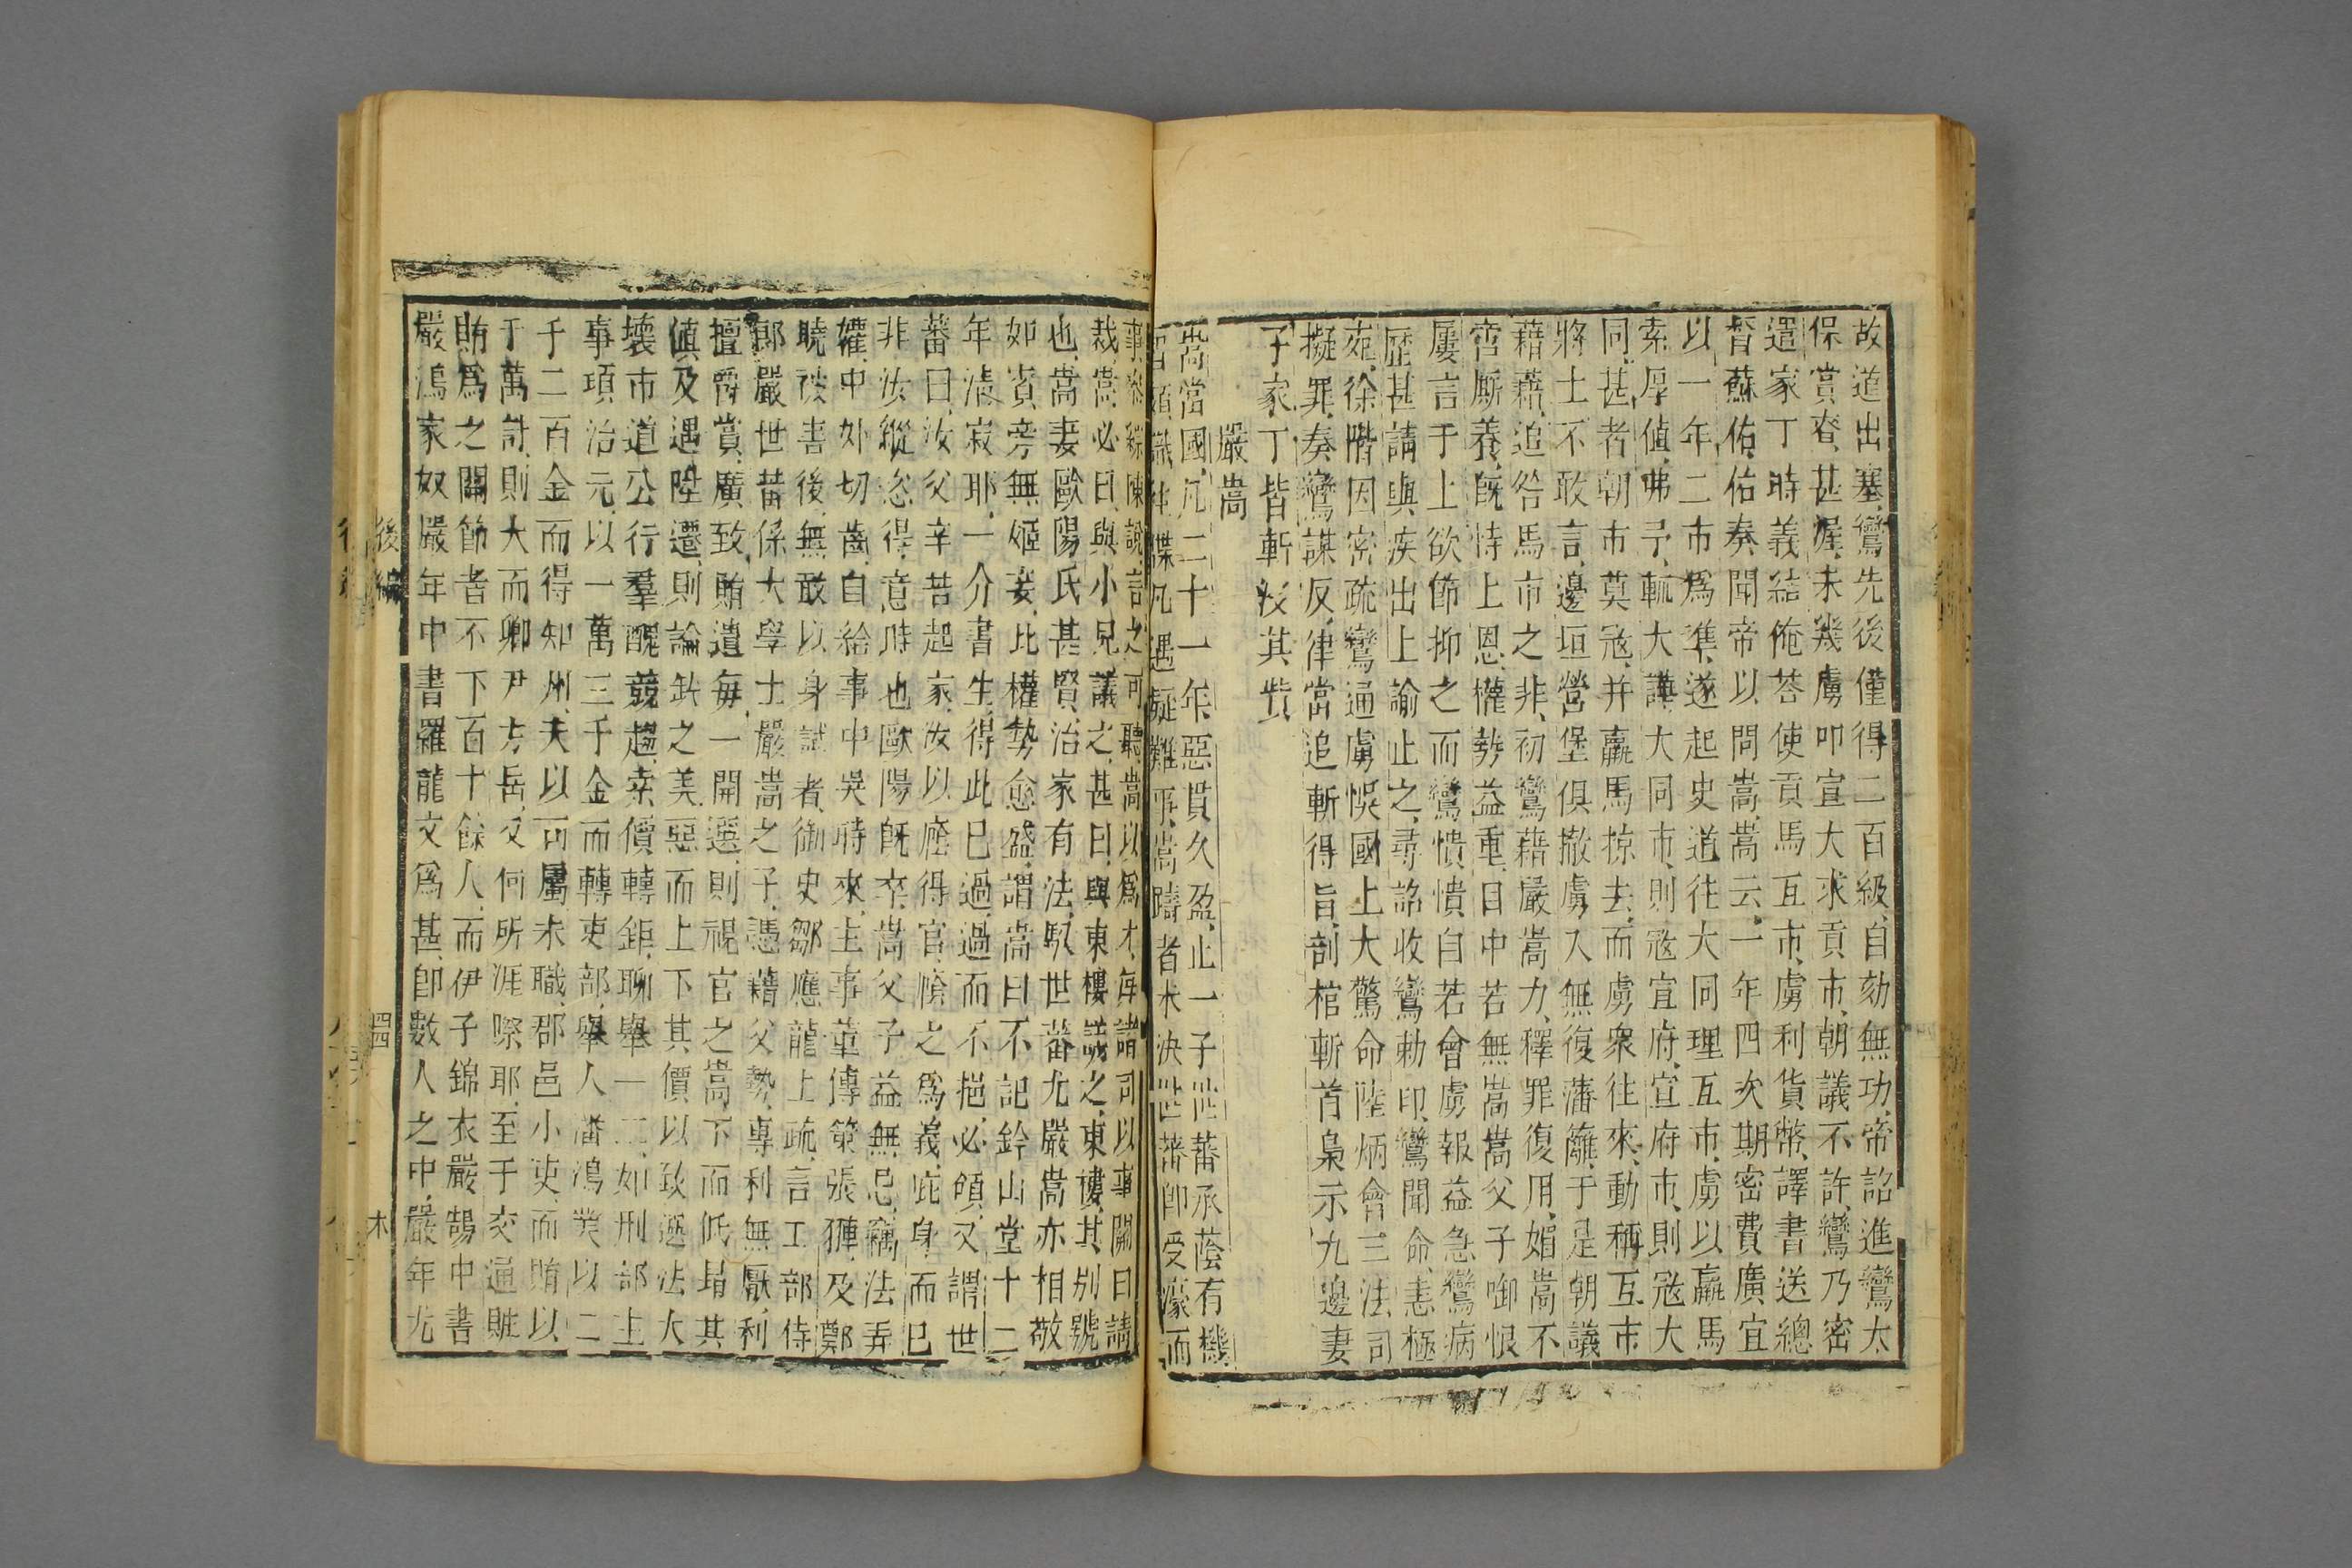 故道出塞鸞先後僅得二百級自劾無功帝詔進鸞太
保賞賚甚渥未幾虜叩宣大求貢市朝議不許鸞乃密
遣家丁時義結俺荅使貢馬互市虜利貨幣譯書送總
督蘇佑佑奏聞帝以問嵩嵩云一年四次期密費廣宜
以一年二市爲準遂起史道往大同理互市虜以羸馬
索厚値弗予輒大譁大同市則寇宣府宣府市則寇大
同甚者朝市莫寇并羸馬掠去而虜衆往來動稱互市
將士不敢言邊垣營堡俱撤虜入無復藩籬于是朝議
藉藉追咎馬市之非初鸞藉嚴嵩力釋罪復用媚嵩不
啻厮養旣恃上恩權勢益重目中若無嵩嵩父子啣恨
屢言于上欲節抑之而鸞憒憒自若會虜報益急鸞病
歷甚請與疾出上諭止之尋詔收鸞勅印鸞聞命恚極
死徐階因密疏鸞通虜悞國上大驚命陸炳會三法司
擬罪奏鸞謀反律當追斬得旨剖棺斬首梟示九邊妻
子家丁皆斬没其貲
嚴嵩
嵩當國凡二十一年惡貫久盈止一子世蕃承蔭有機
凡遇疑難事嵩躊者未決世蕃卽受濠而
裁嵩必曰與小兒議之甚曰與東樓議之東樓其別號
也嵩妻歐陽氏甚賢治家有法馭世蕃尤嚴嵩亦相敬
如賓旁無姬妾比權勢愈盛謂嵩曰不記鈐山堂十二
年淸寂耶一介書生得此已過過而不挹必傾又謂世
蕃曰汝父辛苦起家汝以廕得官儉之爲義庇身而已
非汝縱恣得意時也歐陽旣卒嵩父子益無忌竊法弄
權中外切齒自給事中吳時來主事董傳策張翀及鄭
曉被害後無敢以身試者御史鄒應龍上疏言工部侍
郎嚴世蕃係大學士嚴嵩之子憑藉父勢專利無厭利
擅爵賞廣致賂遺每一開選則視官之高下而低昻其
値及遇陞遷則論缺之美惡而上下其價以致選法大
壞市道公行羣醜競趨索價轉鉅聊舉一二如刑部主
事項治元以一萬三千金而轉吏部舉人潘鴻業以二
千二百金而得知州夫以司屬末職郡邑小吏而賄以
千萬計則大而卿尹方岳又何所涯際耶至于交通贓
賄爲之關節者不下百十餘人而伊子錦衣嚴鵠中書
嚴鴻家奴嚴年中書羅龍文爲甚卽數人之中嚴年尤
後編
四
木